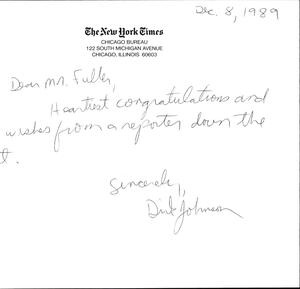 Dec. 8, 1989
The New York Times
CHICAGO BUREAU
122 SOUTH MICHIGAN AVENUE
CHICAGO, ILLINOIS 60603
Dear Mr. Fuller,
Heartiest congratulations and
wishes from a reporter down the
t.
Sincerely,
Dirk Johnson